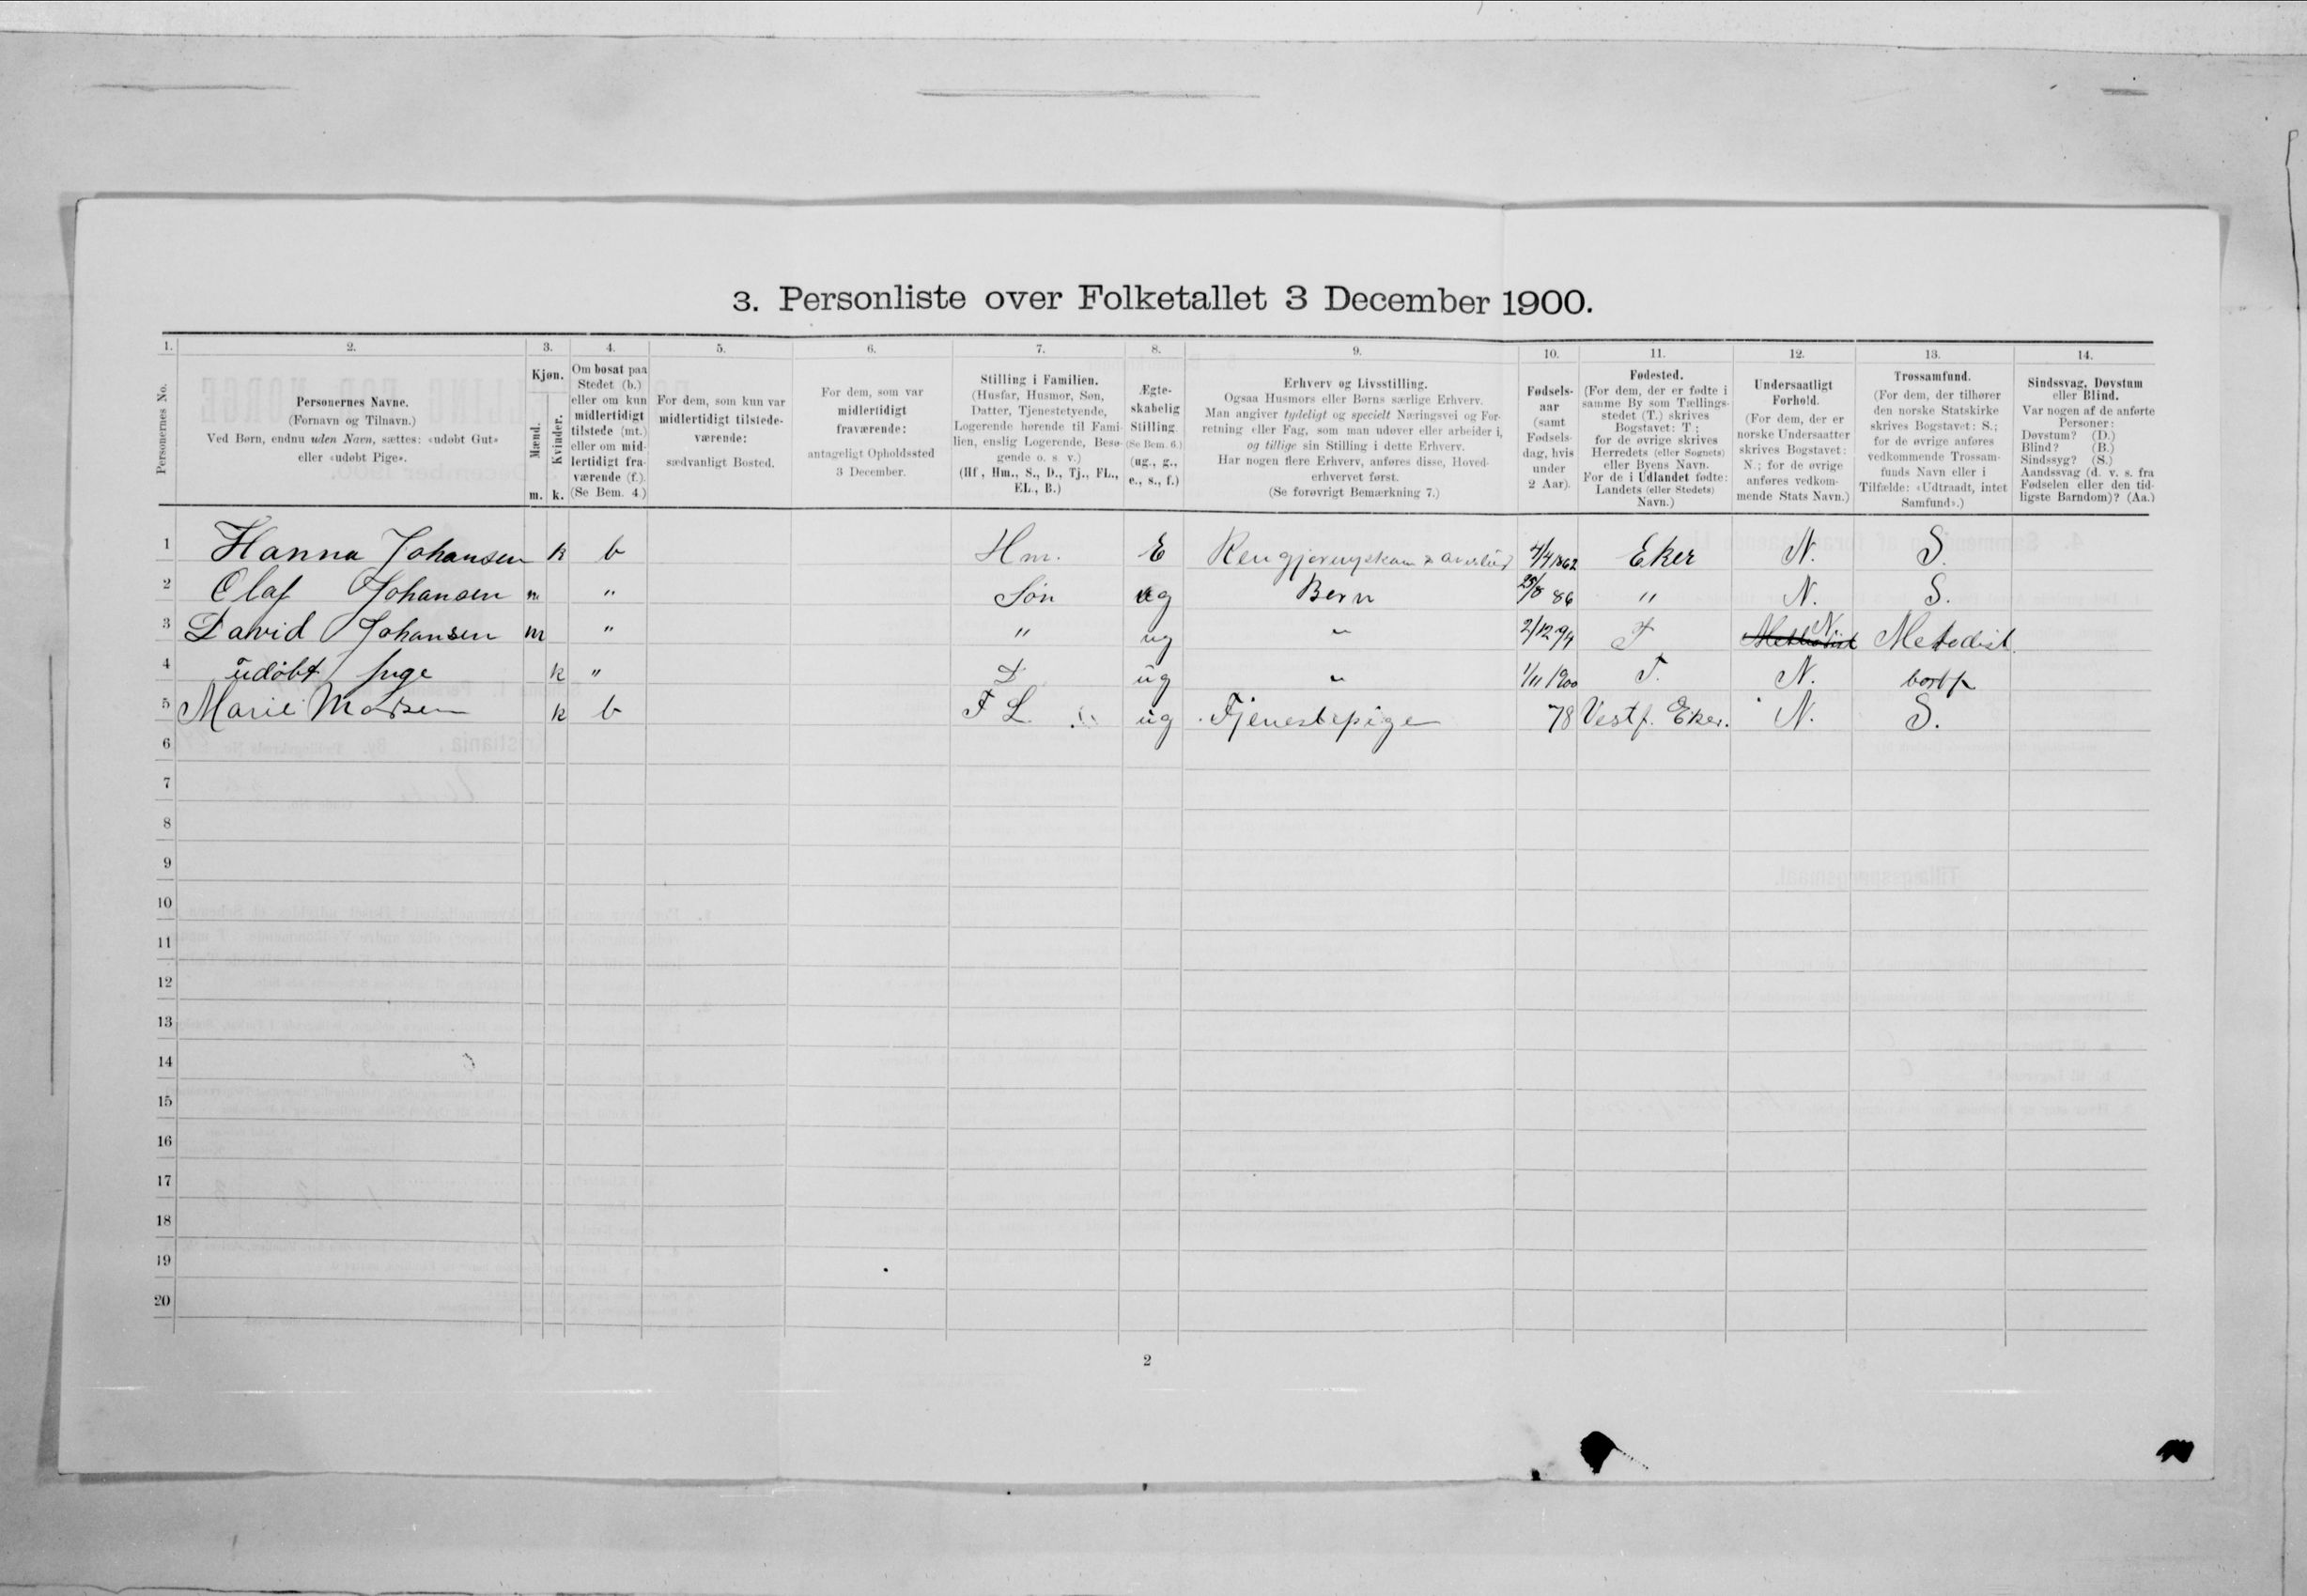 3. Personliste over Folketallet 3 December 1900.
1. 2. 3. 4. 5. 6. 7. 8. 9. 10. 11. 12. 13. 14.
Personernes No.
Personernes Navne.
(Fornavn og Tilnavn.)
Ved Børn, endnu uden Navn, sættes: «udøbt Gut»
eller «udøbt Pige».
Kjøn.
Mænd.
Kvinder.
m. k.
Om bosat paa
Stedet (b.)
eller om kun
midlertidigt
tilstede (mt.)
eller om mid-
lertidigt fra-
værende (f.).
(Se Bem. 4.)
For dem, som kun var
midlertidigt tilstede-
værende:
sædvanligt Bosted.
For dem, som var
midlertidigt
fraværende:
antageligt Opholdssted
3 December.
Stilling i Familien.
(Husfar, Husmor, Søn,
Datter, Tjenestetyende,
Logerende hørende til Fami-
lien, enslig Logerende, Besø-
gende o. s. v.)
(Hf., Hm., S., D., Tj., FL.,
EL., B.)
Ægte-
skabelig
Stilling.
(Se Bem. 6.)
(ug., g.,
e., s., f.)
Erhverv og Livsstilling.
Ogsaa Husmors eller Børns særlige Erhverv.
Man angiver tydeligt og specielt Næringsvei og For-
retning eller Fag, som man udøver eller arbeider i,
og tillige sin Stilling i dette Erhverv.
Har nogen flere Erhverv, anføres disse, Hoved-
erhvervet først.
(Se forøvrigt Bemærkning 7.)
Fødsels-
aar
(samt
Fødsels-
dag, hvis
under
2 Aar).
Fødested.
(For dem, der er fødte i
samme By som Tællings-
stedet (T.) skrives
Bogstavet: T;
for de øvrige skrives
Herredets (eller Sognets)
eller Byens Navn.
For de i Udlandet fødte:
Landets (eller Stedets)
Navn.)
Undersaatligt
Forhold.
(For dem, der er
norske Undersaatter
skrives Bogstavet:
N.; for de øvrige
anføres vedkom-
mende Stats Navn.)
Trossamfund.
(For dem, der tilhører
den norske Statskirke
skrives Bogstavet: S.;
for de øvrige anføres
vedkommende Trossam-
funds Navn eller i
Tilfælde: «Udtraadt, intet
Samfund».)
Sindssvag, Døvstum
eller Blind.
Var nogen af de anførte
Personer:
Døvstum? (D.)
Blind? (B.)
Sindssyg? (S.)
Aandssvag (d. v. s. fra
Fødselen eller den tid-
ligste Barndom)? (Aa.)
1 Hanna Johansen k b Hm. E 4/4 1862 Eker N. S.
2 Olaf Johansen m " Søn ug Børn 25/8 86 " N. S.
3 David Johansen m " " ug " 2/12 94 T N. Metodist.
4 udøbt Pige k " D ug " 1/11 1900 T. N.
5 Marie k b F L. ug Tjenestepige 78 Vestf. Eker. N. S.
6
7
8
9
10
11
12
13
14
15
16
17
18
19
20
2